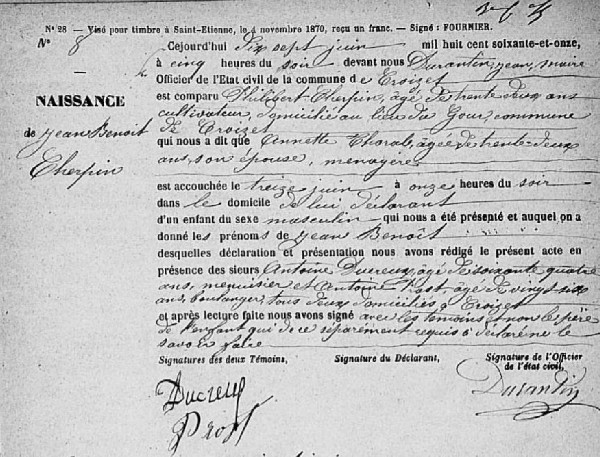 N° 28 — Visé pour timbre à Saint-Etienne, le 4 novembre 1870, reçu un franc. — Signé : FOURNIER.
N° 8
NAISSANCE
de Jean Benoit
Cherpin
Cejourd'hui Dix sept juin mil huit cent soixante-et-onze,
à cinq heures du soir devant nous Durantin, Jean, maire
Officier de l'Etat civil de la commune de Croizet
est comparu Philibert Cherpin, âgé de trente deux ans
cultivateur, domicilié au lieu du Gour, commune
de Croizet
qui nous a dit que Annette Chorab, agée de trente-deux
ans, son épouse, menagère
est accouchée le treize juin à onze heures du soir
dans le domicile de lui déclarant
d'un enfant du sexe masculin qui nous a été présenté et auquel on a
donné les prénoms de Jean Benoît
desquelles déclaration et présentation nous avons rédigé le présent acte en
présence des sieurs Antoine Ducreux, agé de soixante quatre
ans, menuisier et Antoine Prost, agé de vingt-six
ans, boulanger, tous deux domiciliés à Croizet
et après lecture faite nous avons signé avec les temoins et non le père
de l'enfant qui de ce séparément requis a déclaré ne le
savoir faire
Signatures des deux Témoins,
Signature du Déclarant,
Signature de l'Officier
de l'état civil,
Ducreux
Prost
Durantin